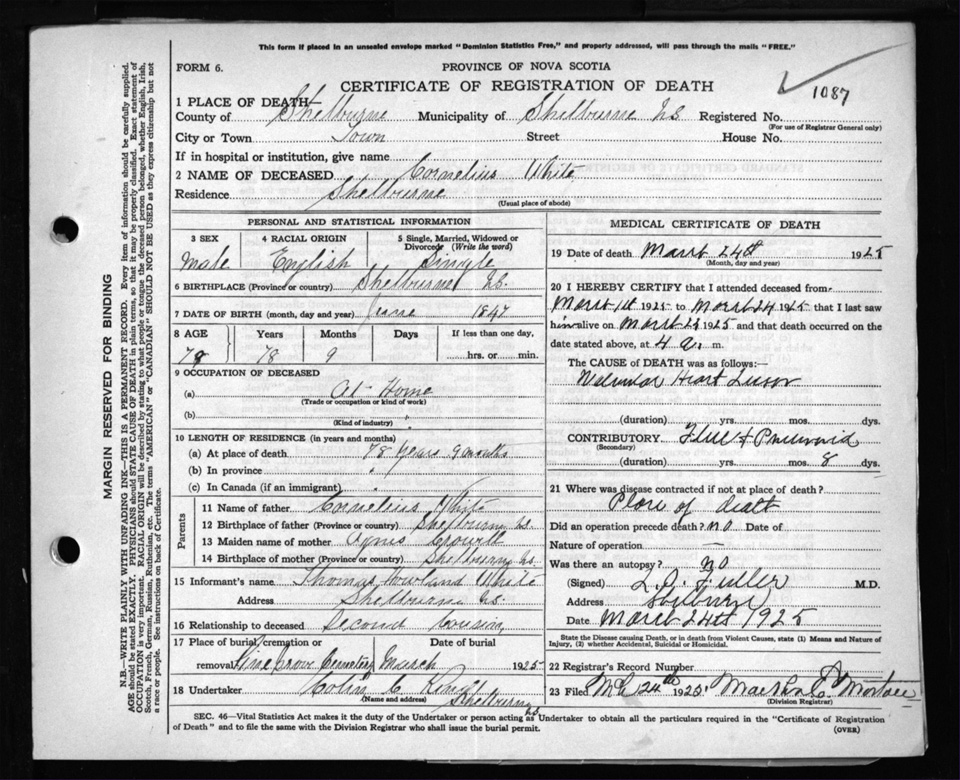 This form if placed in an unsealed envelope marked "Dominion Statistics Free," and properly addressed, will pass through the mails "FREE."
FORM 6.
PROVINCE OF NOVA SCOTIA
CERTIFICATE OF REGISTRATION OF DEATH
1087
1 PLACE OF DEATH—
County of Shelburne Municipality of Shelburne NS Registered No.
(For use of Registrar General only)
City or Town Town Street House No.
If in hospital or institution, give name
2 NAME OF DECEASED Cornelius White
Residence Shelburne
(Usual place of abode)
MARGIN RESERVED FOR BINDING
N.B.—WRITE PLAINLY WITH UNFADING INK—THIS IS A PERMANENT RECORD. Every item of information should be carefully supplied.
AGE should be stated EXACTLY. PHYSICIANS should state CAUSE OF DEATH in plain terms, so that it may be properly classified. Exact statement of
OCCUPATION is very important. RACIAL ORIGIN will be described by stating to what people or tongue the deceased person belonged, whether English, Irish,
Scotch, French, German, Russian, Ruthenian, etc. The terms "AMERICAN" or "CANADIAN" SHOULD NOT BE USED as they express citizenship but not
a race or people. See instructions on back of Certificate.
PERSONAL AND STATISTICAL INFORMATION
3 SEX 4 RACIAL ORIGIN 5 Single, Married, Widowed or
Divorced (Write the word)
Male English Single
6 BIRTHPLACE (Province or country) Shelburne NS.
7 DATE OF BIRTH (month, day and year) June 1847
8 AGE Years Months Days If less than one day,
78 78 9 hrs. or min.
9 OCCUPATION OF DECEASED
(a) At Home
(Trade or occupation or kind of work)
(b)
(Kind of industry)
10 LENGTH OF RESIDENCE (in years and months)
(a) At place of death 78 years 9 months
(b) In province "
(c) In Canada (if an immigrant)
Parents
11 Name of father Cornelius White
12 Birthplace of father (Province or country) Shelburne NS.
13 Maiden name of mother Agnes Crowell
14 Birthplace of mother (Province or country) Shelburne NS.
15 Informant's name Thomas Howland White
Address Shelburne NS.
16 Relationship to deceased Second Cousin
17 Place of burial, cremation or Date of burial
removal Pine Grove Cemetery March 1925
18 Undertaker Colin C
(Name and address) Shelburne
NS
MEDICAL CERTIFICATE OF DEATH
19 Date of death March 24th 1925
(Month, day and year)
20 I HEREBY CERTIFY that I attended deceased from
March 1st 1925 to March 24 1925 that I last saw
him alive on March 23 1925 and that death occurred on
date stated above, at 4 a. m.
The CAUSE OF DEATH was as follows:—
Valvular Heart Lesion
(duration) yrs. mos. dys.
CONTRIBUTORY Flue & Pneumonia
(Secondary)
(duration) yrs. mos. 8 dys.
21 Where was disease contracted if not at place of death?
Place of death
Did an operation precede death? no Date of
Nature of operation —
Was there an autopsy? no
(Signed) L.O. Fuller M.D.
Address Shelburne
Date March 24th 1925
State the Disease causing Death, or in death from Violent Causes, state (1) Means and Nature of
Injury, (2) whether Accidental, Suicidal or Homicidal.
22 Registrar's Record Number
23 Filed Mch 24th 1925
(Division Registrar)
SEC. 46—Vital Statistics Act makes it the duty of the Undertaker or person acting as Undertaker to obtain all the particulars required in the "Certificate of Registration
of Death" and to file the same with the Division Registrar who shall issue the burial permit.
(OVER)